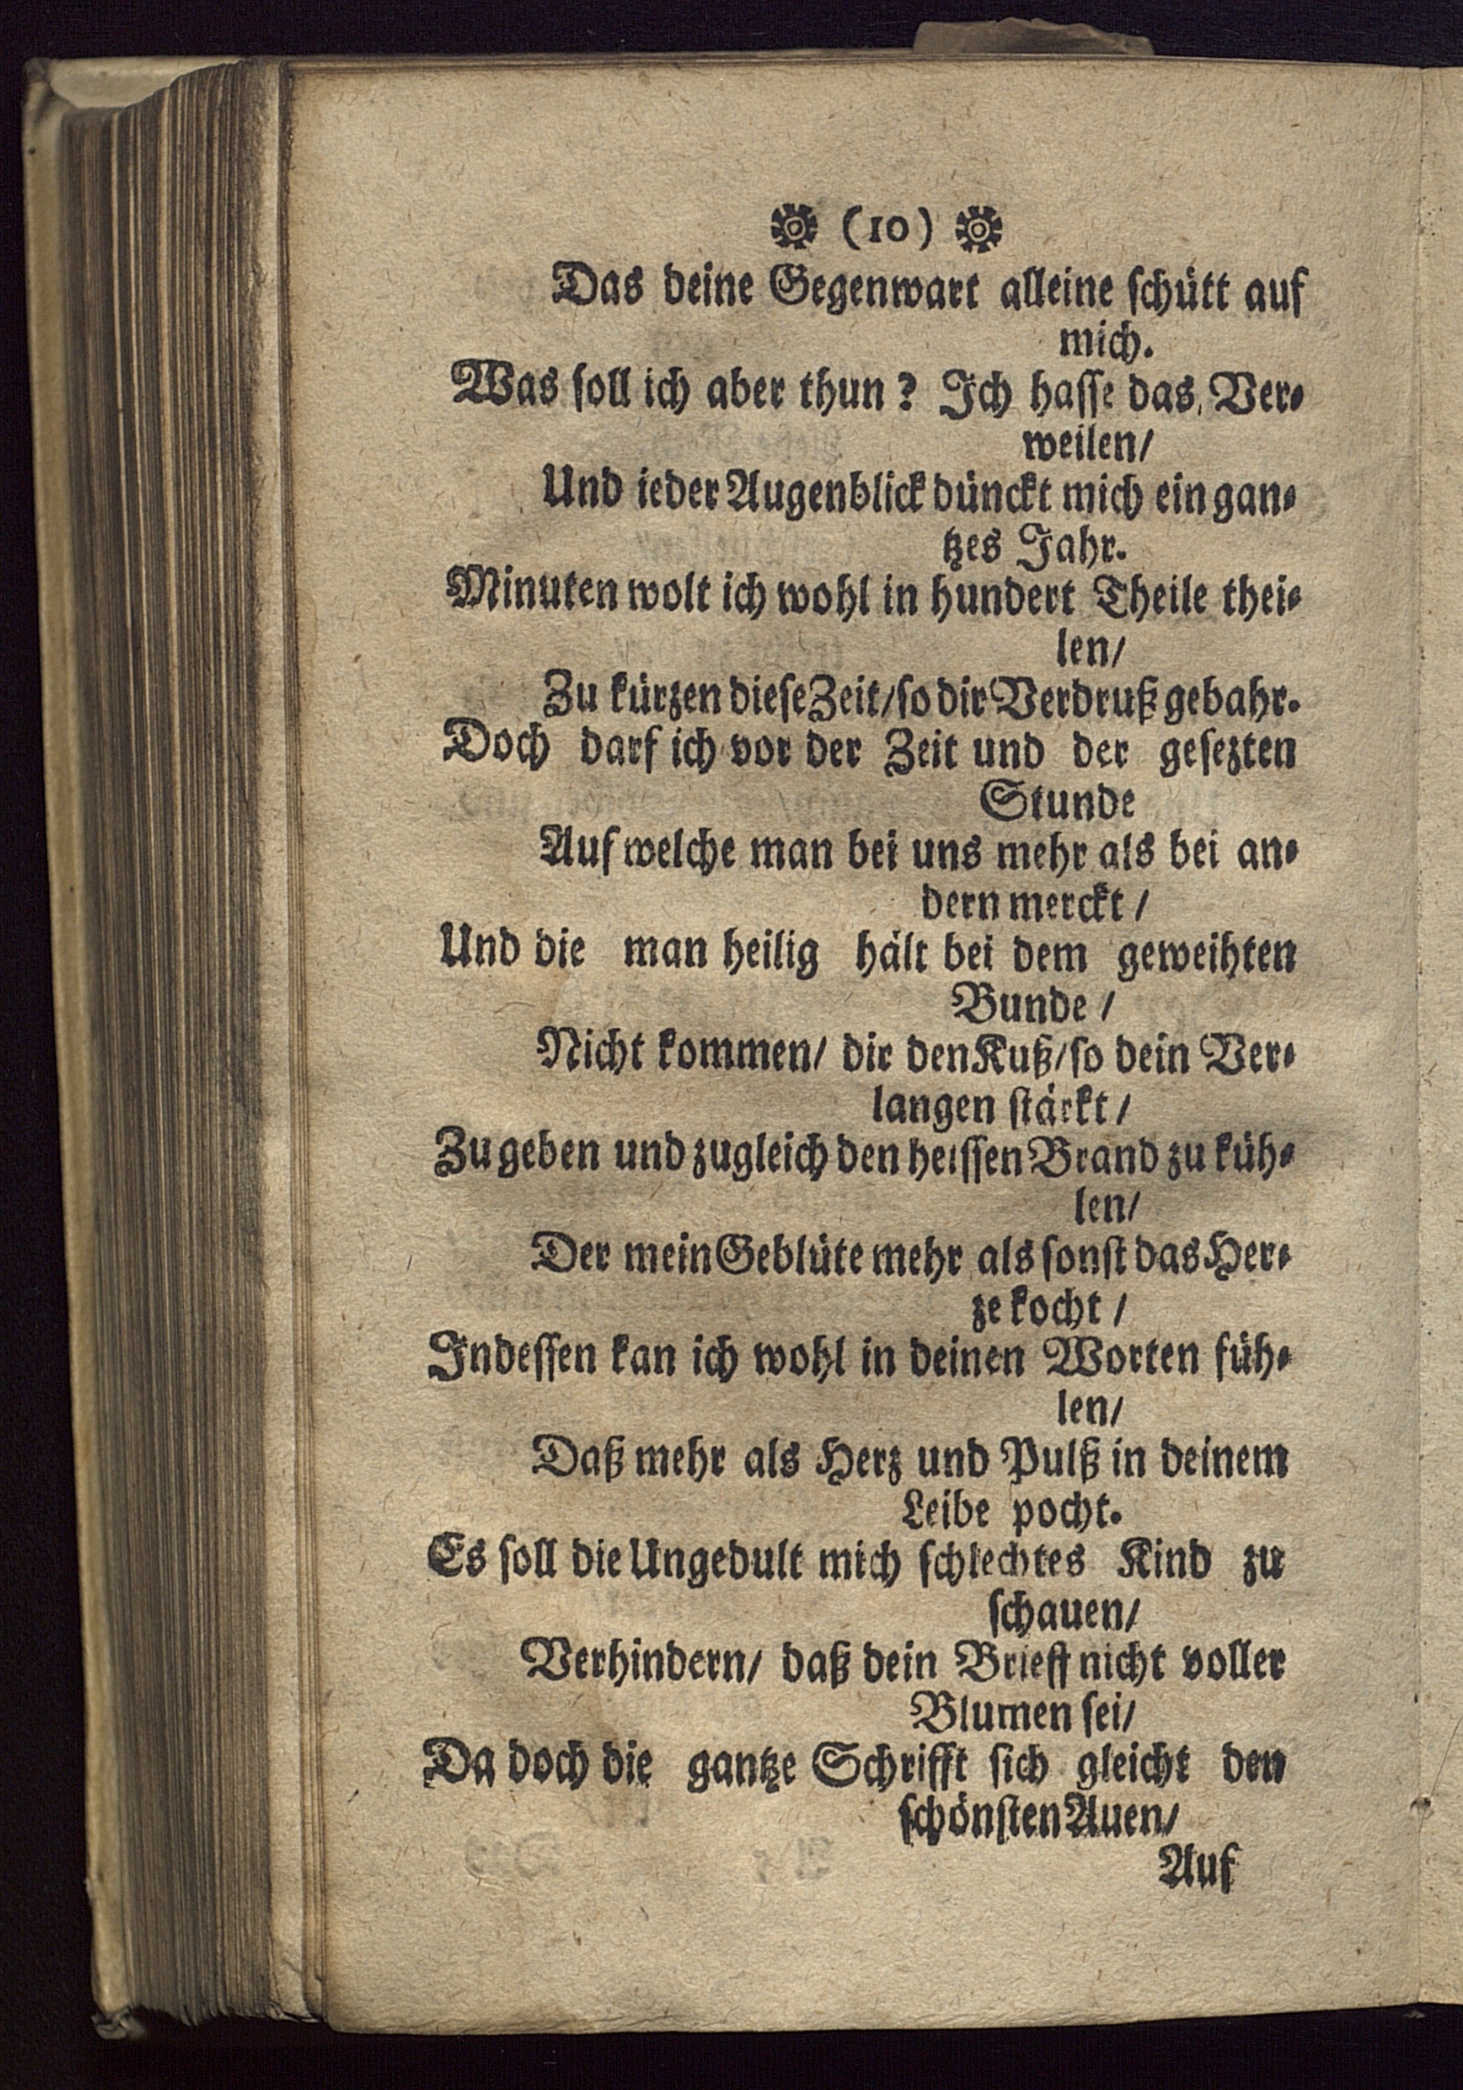 (10)
Das deine Gegenwart alleine schütt auf
mich.
Was soll ich aber thun? Ich hasse das Ver-
weilen/
Und ieder Augenblick dünckt mich ein gan-
tzes Jahr.
Minuten wolt ich wohl in hundert Theile thei-
len/
Zu kürzen diese Zeit/so dir Verdruß gebahr.
Doch darf ich vor der Zeit und der gesezten
Stunde
Auf welche man bei uns mehr als bei an-
dern merckt/
Und die man heilig hält bei dem geweihten
Bunde/
Nicht kommen/ dir den Kuß/so dein Ver-
langen stärkt/
Zu geben und zugleich den heissen Brand zu küh-
len/
Der mein Geblüte mehr als sonst das Her-
ze kocht/
Indessen kan ich wohl in deinen Worten füh-
len/
Daß mehr als Herz und Pulß in deinem
Leibe pocht.
Es soll die Ungedult mich schlechtes Kind zu
schauen/
Verhindern/ daß dein Brieff nicht voller
Blumen sei/
Da doch die gantze Schrifft sich gleicht den
schönsten Auen/
Auf